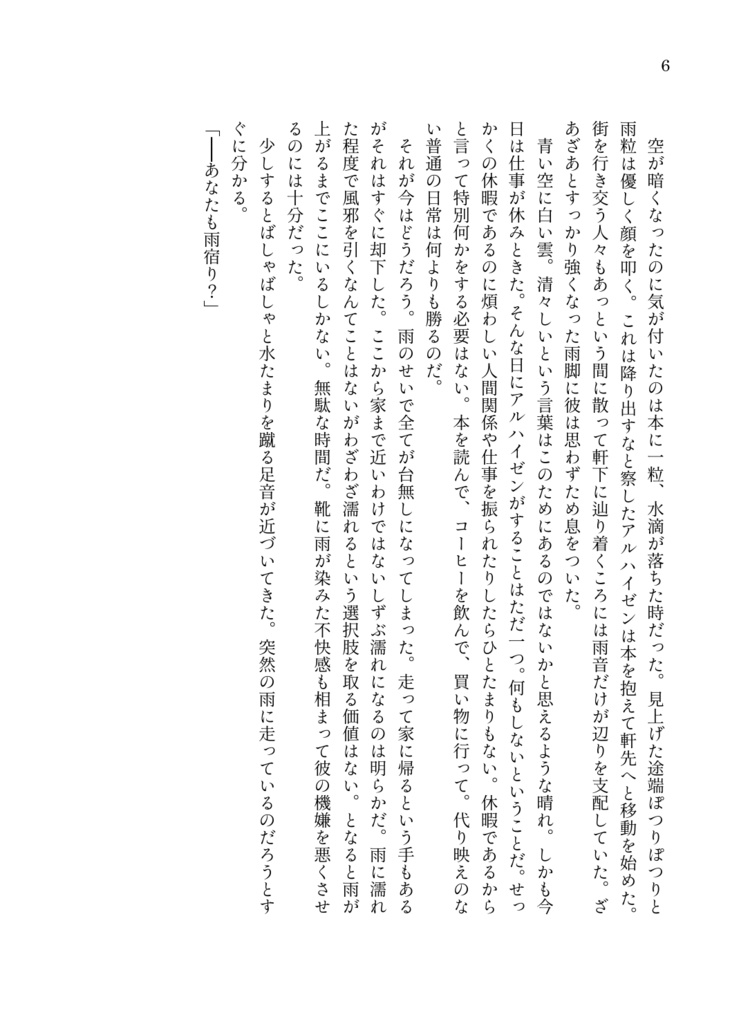 6
空が暗くなったのに気が付いたのは本に一粒、水滴が落ちた時だった。見上げた途端ぽつりぽつりと
雨粒は優しく顔を叩く。これは降り出すなと察したアルハイゼンは本を抱えて軒先へと移動を始めた。
街を行き交う人々もあっという間に散って軒下に辿り着くころには雨音だけが辺りを支配していた。ざ
あざあとすっかり強くなった雨脚に彼は思わずため息をついた。
青い空に白い雲。清々しいという言葉はこのためにあるのではないかと思えるような晴れ。しかも今
日は仕事が休みときた。そんな日にアルハイゼンがすることはただ一つ。何もしないということだ。せっ
かくの休暇であるのに煩わしい人間関係や仕事を振られたりしたらひとたまりもない。休暇であるから
と言って特別何かをする必要はない。本を読んで、コーヒーを飲んで、買い物に行って。代り映えのな
い普通の日常は何よりも勝るのだ。
それが今はどうだろう。雨のせいで全てが台無しになってしまった。走って家に帰るという手もある
がそれはすぐに却下した。ここから家まで近いわけではないしずぶ濡れになるのは明らかだ。雨に濡れ
た程度で風邪を引くなんてことはないがわざわざ濡れるという選択肢を取る価値はない。となると雨が
上がるまでここにいるしかない。無駄な時間だ。靴に雨が染みた不快感も相まって彼の機嫌を悪くさせ
るのには十分だった。
少しするとばしゃばしゃと水たまりを蹴る足音が近づいてきた。突然の雨に走っているのだろうとす
ぐに分かる。
「――あなたも雨宿り？」